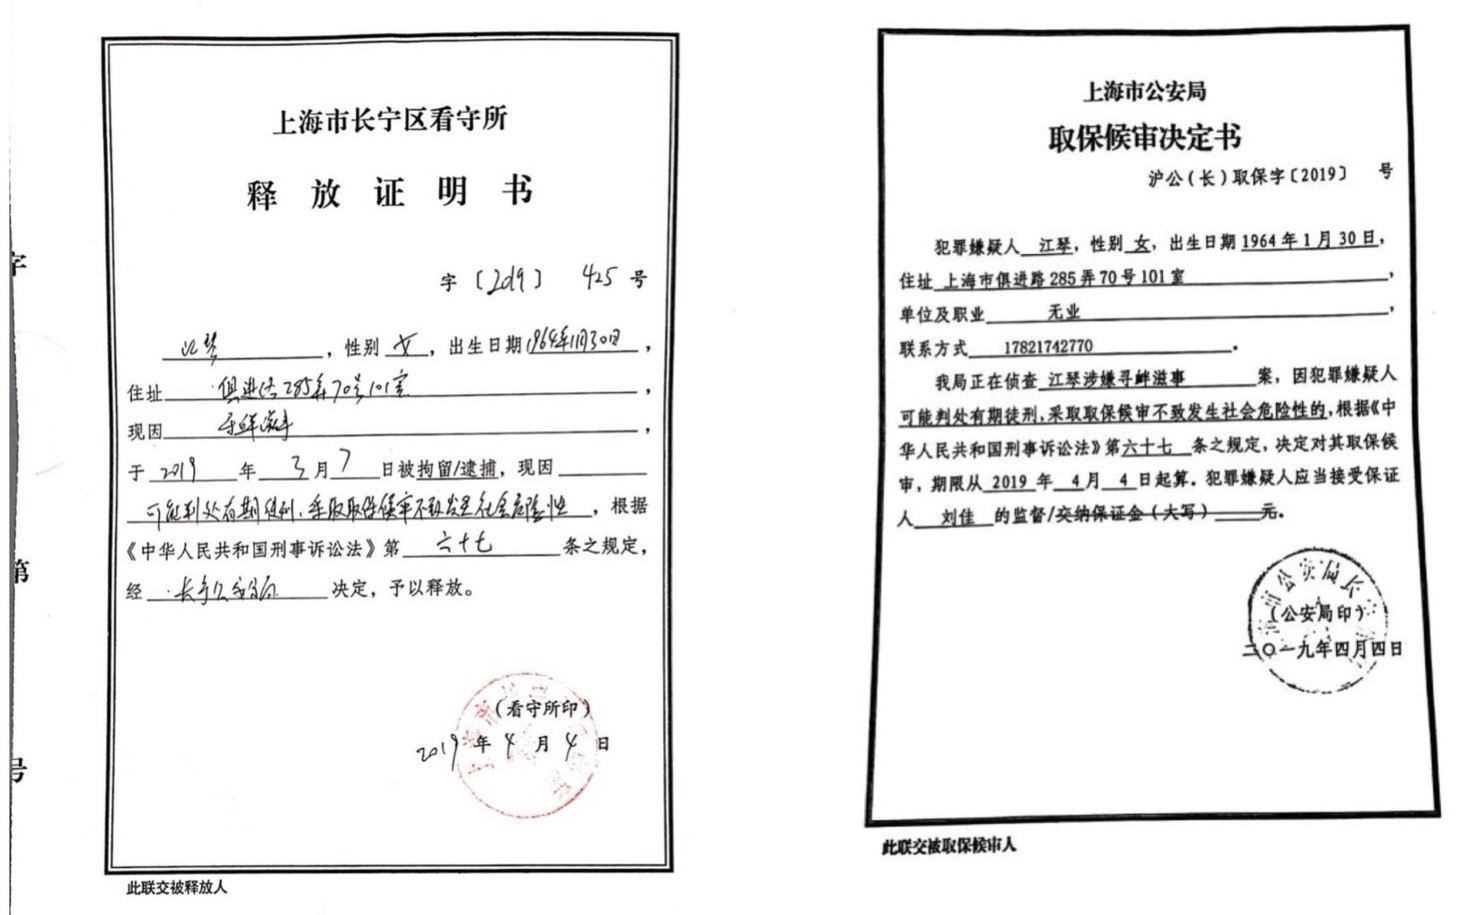 字
第
号
上海市长宁区看守所
释放证明书
字〔2019〕 425 号
江琴，性别 女，出生日期1964年1月30日，
住址 俱进路285弄70号101室，
现因 寻衅滋事，
于 2019 年 3 月 7 日被拘留/逮捕，现因
可能判处有期徒刑，采取取保候审不致发生社会危险性，根据
《中华人民共和国刑事诉讼法》第 六十七 条之规定，
经 长宁公安分局 决定，予以释放。
（看守所印）
2019 年 4 月 4 日
此联交被释放人
上海市公安局
取保候审决定书
沪公（长）取保字〔2019〕 号
犯罪嫌疑人 江琴，性别 女，出生日期 1964年1月30日，
住址 上海市俱进路285弄70号101室，
单位及职业 无业，
联系方式 17821742770。
我局正在侦查 江琴涉嫌寻衅滋事 案，因犯罪嫌疑人
可能判处有期徒刑，采取取保候审不致发生社会危险性的，根据《中
华人民共和国刑事诉讼法》第六十七 条之规定，决定对其取保候
审，期限从 2019 年 4 月 4 日起算。犯罪嫌疑人应当接受保证
人 刘佳 的监督/交纳保证金（大写） 元。
（公安局印）
二〇一九年四月四日
此联交被取保候审人